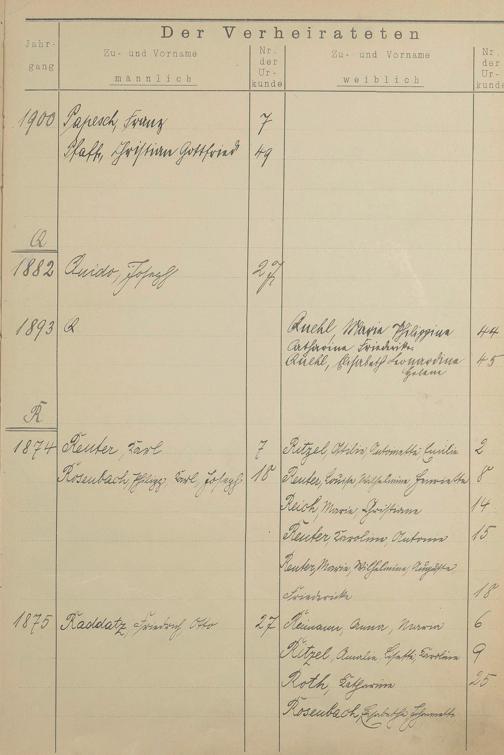 Der Verheirateten
Jahrgang
Zu- und Vorname
männlich
Nr. der Urkunde
Zu- und Vorname
weiblich
Nr. der Urkunde
1900 Papesch, Franz 7
Pfaff, Christian Gottfried 49
Q
1882 Quido, Joseph
1893 Q Quehl, Marie Philippine 44
Catharine Friederike
Quehl, Elisabeth Leonardine 45
Helene
R
1874 Reuter, Karl 7 Ritzel, Ottilie, Antonette Emilie 2
Rosenbach, Philipp, Karl, Joseph 18 Reuter, Louise Wilhelmine Henriette 8
Reich, Marie Christiane 14
Reuter Karoline, Antonie 15
Reuter, Marie, Wilhelmine, Auguste
Friederike 18
1875 Raddatz, Friedrich Otto 27 Reimann, Anna, Maria 6
Ritzel, Amalie, Lisette, Karoline 9
Roth, Katharine 25
Rosenbach, Elisabetha Johannette